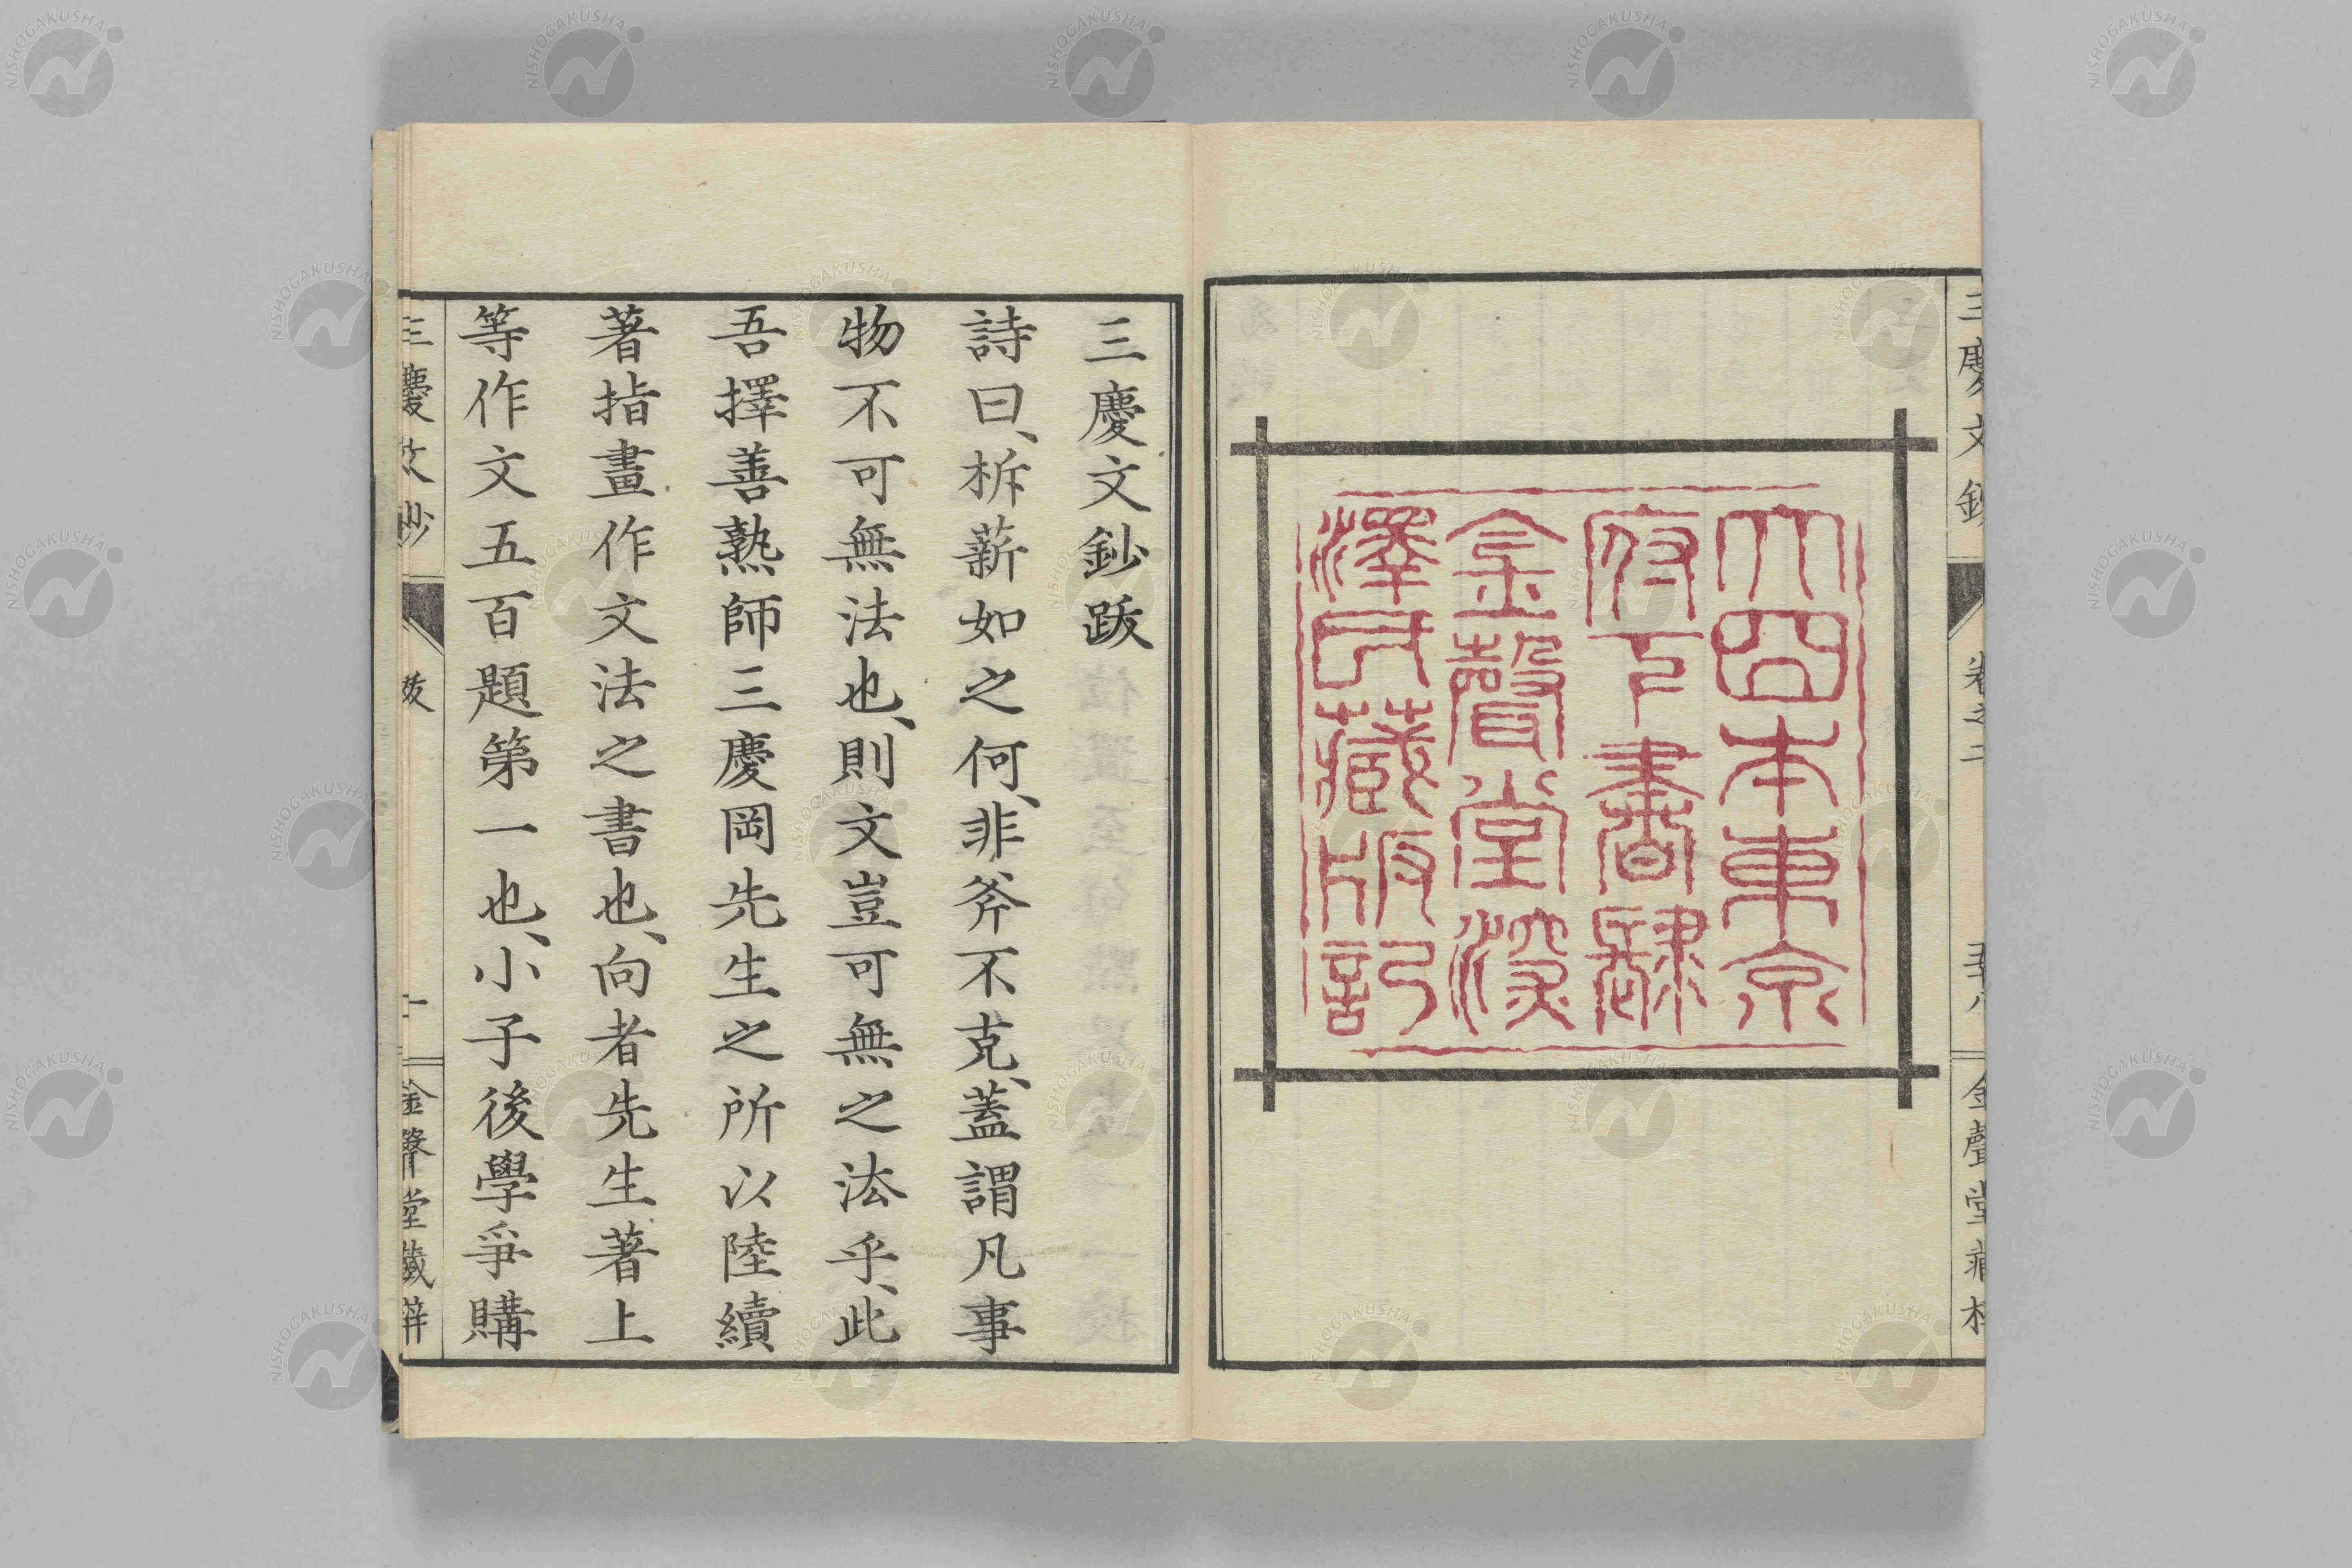 三慶文鈔 卷之二 五十八 金聲堂藏梓
大日本東京
府下書肆
金聲堂深
澤氏藏版記
三慶文鈔跋
詩曰、柝薪如之何、非斧不克、蓋謂凡事
物不可無法也、則文豈可無之法乎、此
吾擇善熟師三慶岡先生之所以陸續
著指畫作文法之書也、向者先生著上
等作文五百題第一也、小子後學爭購
三慶文鈔 跋 一 金聲堂藏梓
NISHOGAKUSHA